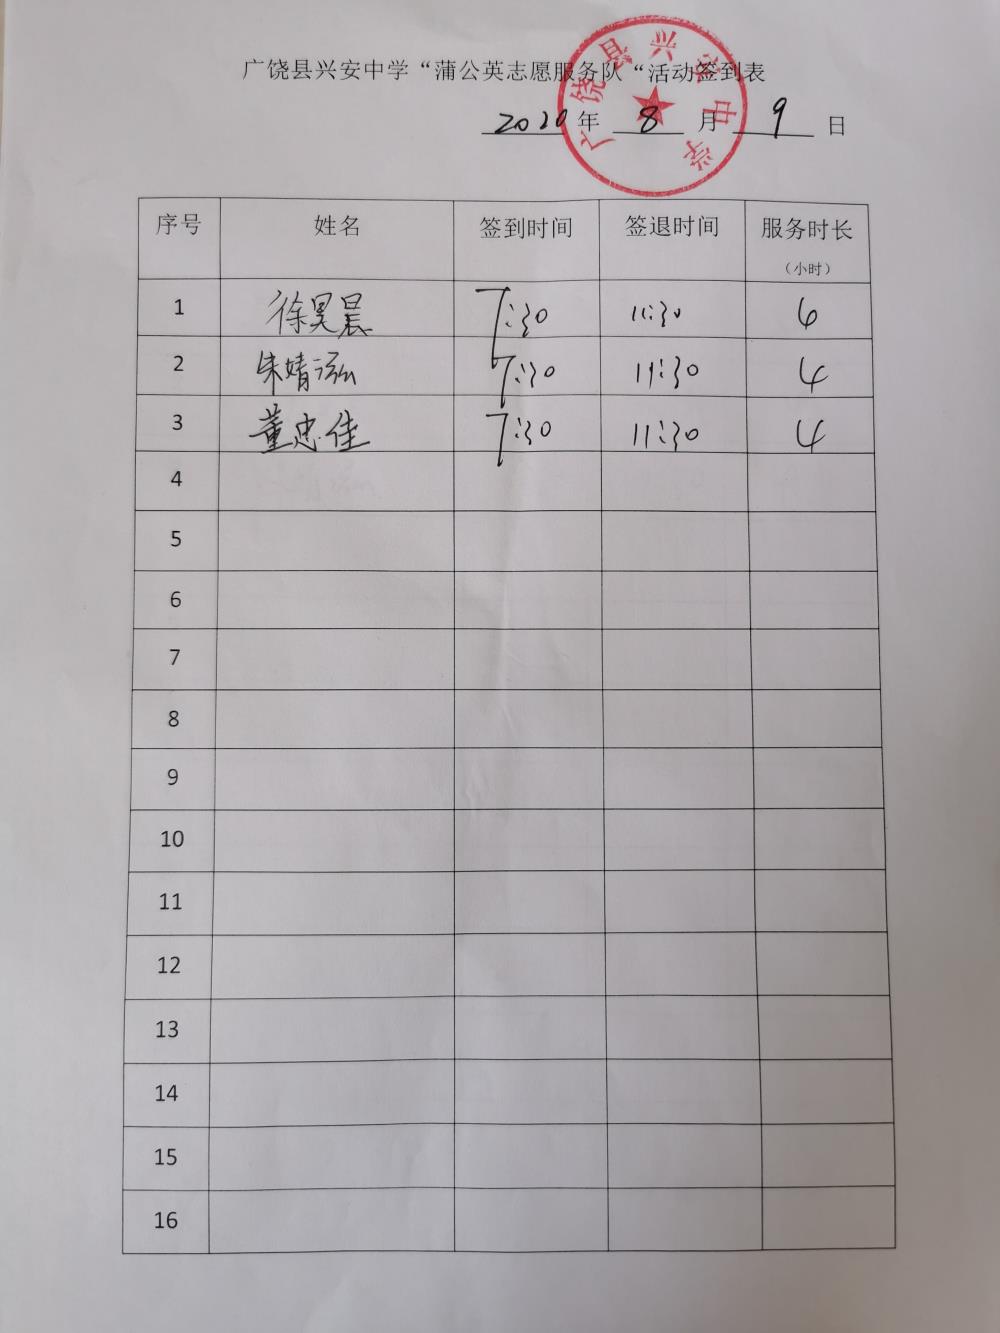 广饶县兴安中学“蒲公英志愿服务队“活动签到表
2020 年 8 月 9 日
广饶县兴安中学
序号 姓名 签到时间 签退时间 服务时长
（小时）
1 徐昊晨 7:30 11:30 6
2 朱婧泓 7:30 11:30 4
3 董忠佳 7:30 11:30 4
4
5
6
7
8
9
10
11
12
13
14
15
16